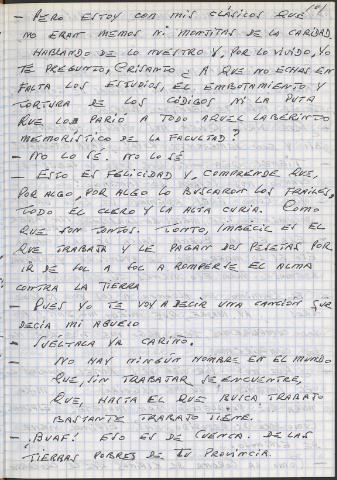 101
- PERO ESTOY CON MIS CLÁSICOS QUE
NO ERAN MEMOS NI MONJITAS DE LA CARIDAD
HABLANDO DE LO NUESTRO Y, POR LO VIVIDO, YO
TE PREGUNTO, CRISANTO ¿A QUE NO ECHAS EN
FALTA LOS ESTUDIOS, EL EMBOTAMIENTO Y
TORTURA DE LOS CÓDIGOS NI LA PUTA
QUE LOS PARIÓ A TODO AQUEL LABERINTO
MEMORÍSTICO DE LA FACULTAD?
- NO LO SÉ. NO LO SÉ
- ESTO ES FELICIDAD Y, COMPRENDE QUE,
POR ALGO, POR ALGO LO BUSCARON LOS FRAILES,
TODO EL CLERO Y LA ALTA CURIA. COMO
QUE SON TONTOS. TONTO, IMBÉCIL ES EL
QUE TRABAJA Y LE PAGAN DOS PESETAS POR
IR DE SOL A SOL A ROMPERSE EL ALMA
CONTRA LA TIERRA
- PUES YO TE VOY A DECIR UNA CANCIÓN QUE
DECÍA MI ABUELO
- SUÉLTALA YA CARIÑO.
- NO HAY NINGÚN HOMBRE EN EL MUNDO
QUE, SIN TRABAJAR SE ENCUENTRE,
QUE, HASTA EL QUE BUSCA TRABAJO
BASTANTE TRABAJO TIENE.
- ¡BUAF! ESO ES DE CUENCA. DE LAS
TIERRAS POBRES DE TU PROVINCIA.